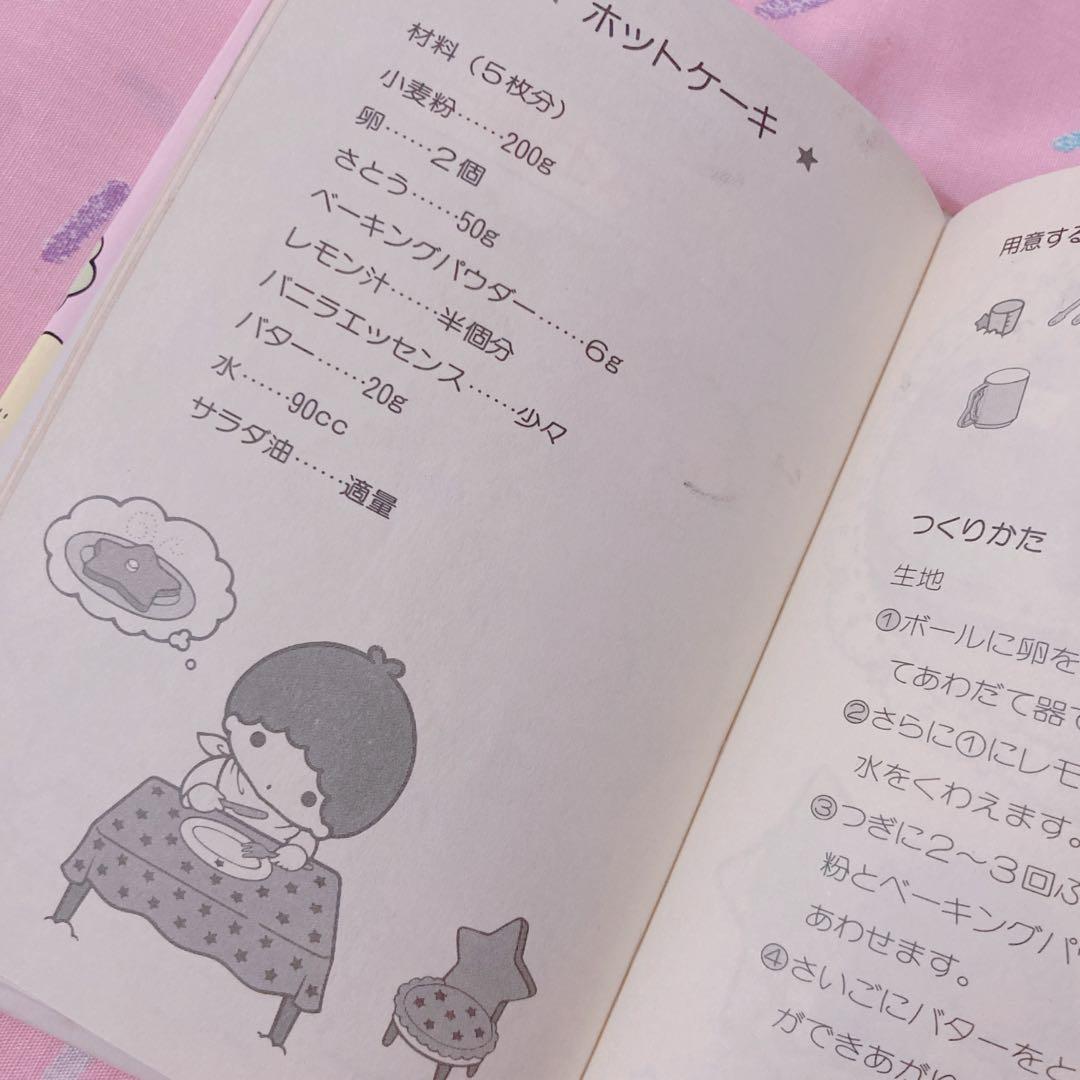 ホットケーキ ★
材料(5枚分)
小麦粉……200g
卵……2個
さとう……50g
ベーキングパウダー……6g
レモン汁……半個分
バニラエッセンス……少々
バター……20g
水……90cc
サラダ油……適量
用意する
つくりかた
生地
①ボールに卵を
てあわだて器で
②さらに①にレモ
水をくわえます。
③つぎに2〜3回ふ
粉とベーキングパ
あわせます。
④さいごにバターをと
ができあが